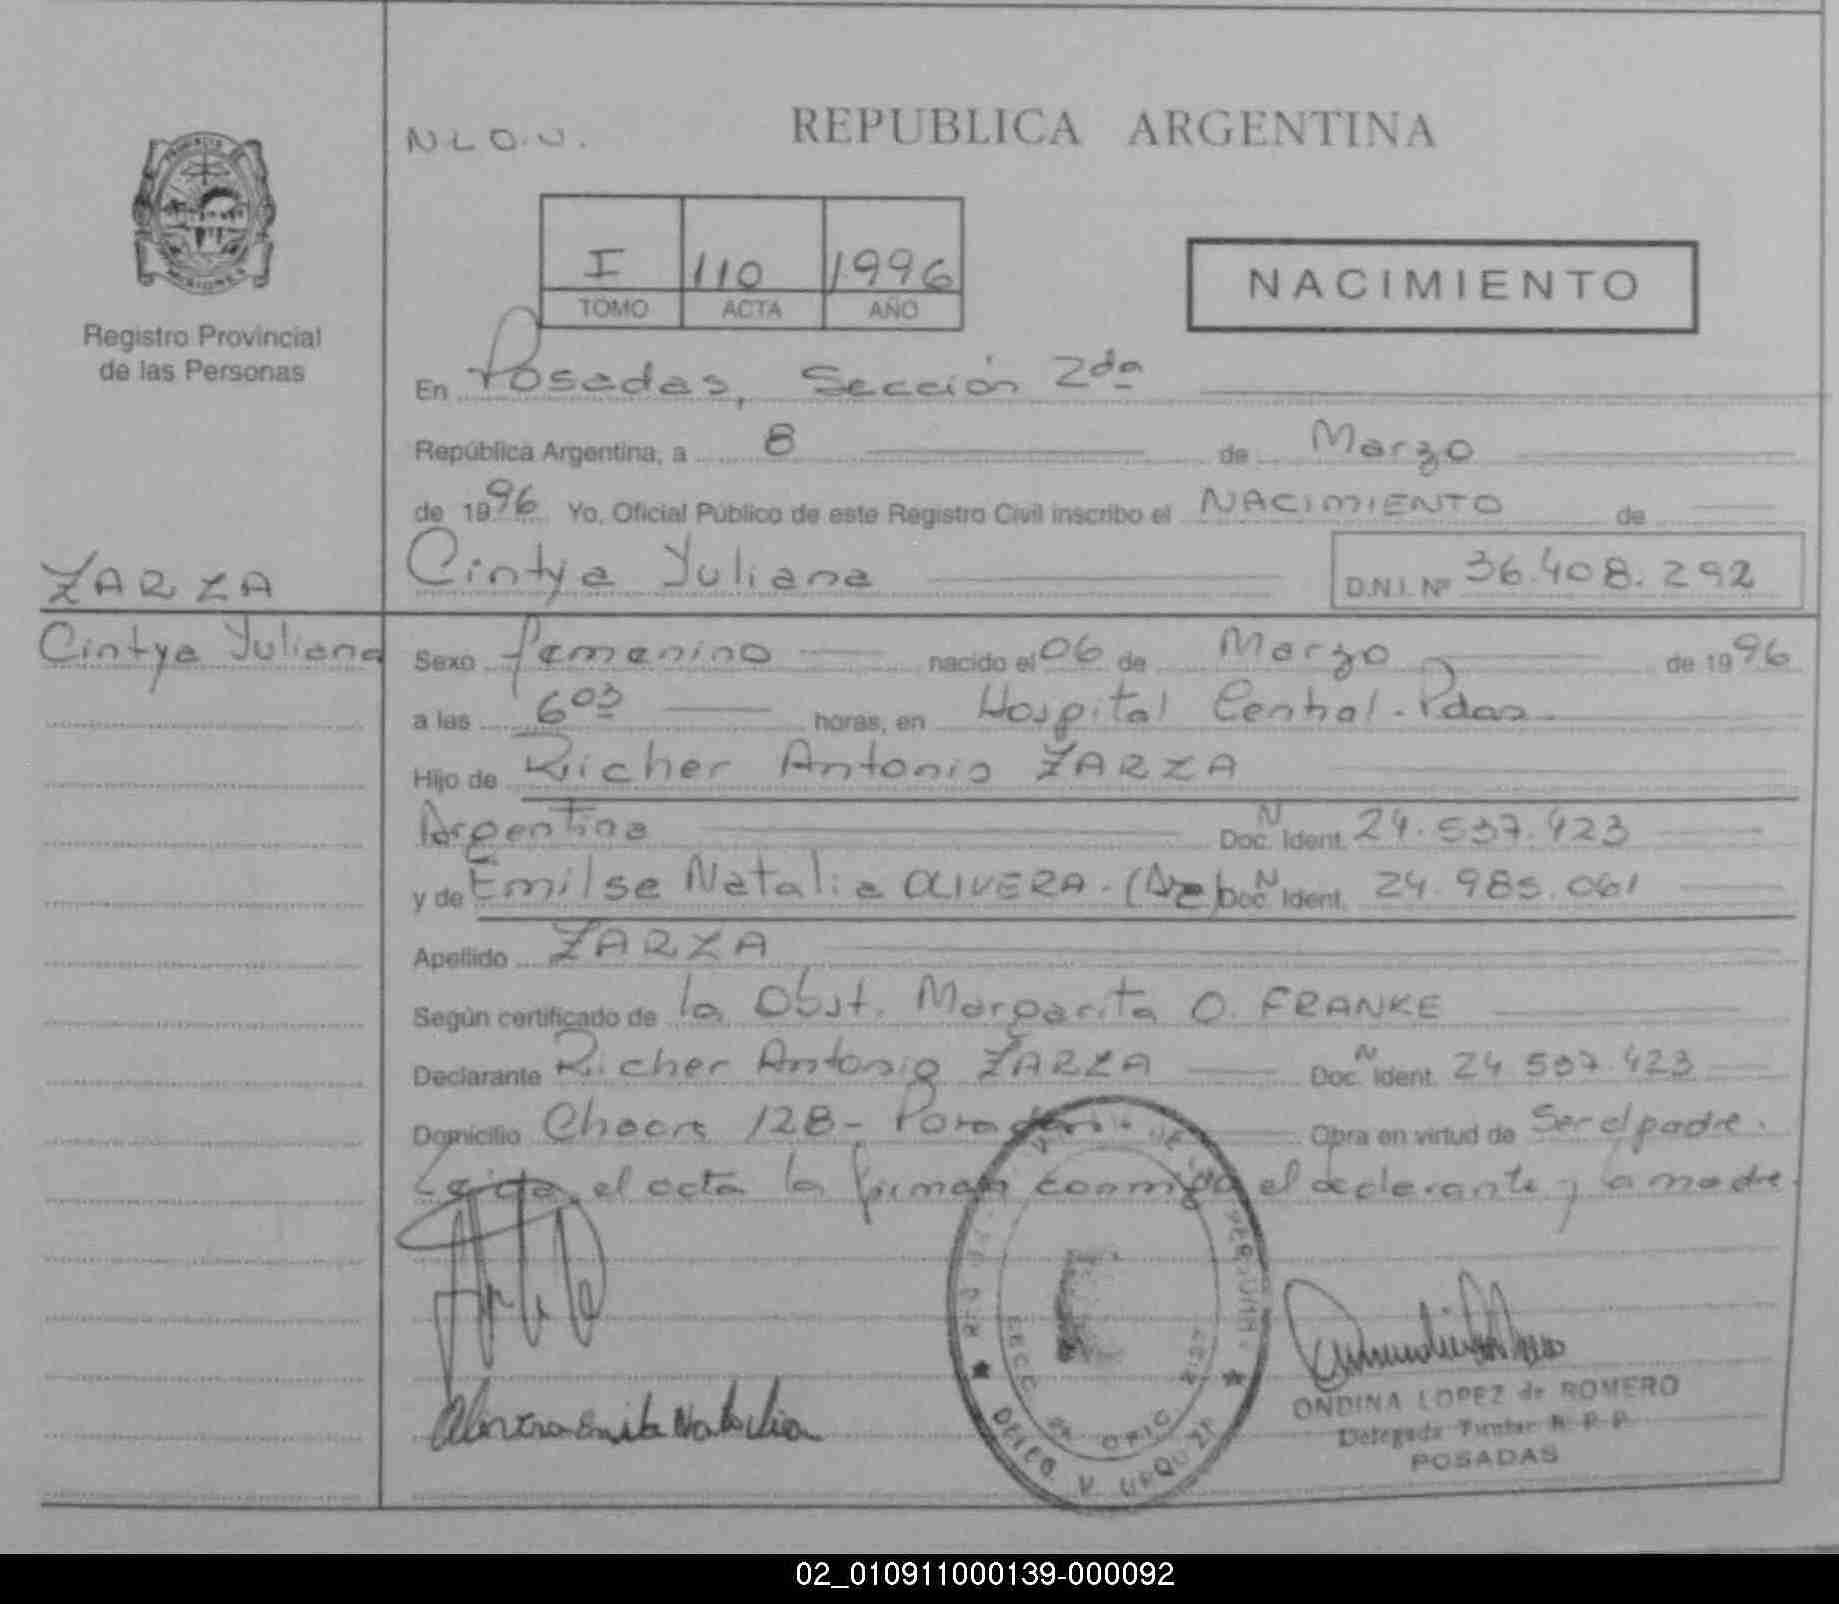 N.L.O.U.
REPUBLICA ARGENTINA
I 110 1996
TOMO ACTA AÑO
NACIMIENTO
Registro Provincial
de las Personas
En Posadas, Sección 2da
República Argentina, a 8 de Marzo
de 1996 Yo, Oficial Público de este Registro Civil inscribo el NACIMIENTO de
Cintya Yuliana D.N.I. Nº 36.408.292
ZARZA
Cintya Yuliana
Sexo femenino nacido el 06 de Marzo de 1996
a las 6 03 horas, en Hospital Central. Pdas.
Hijo de Richer Antonio ZARZA
Argentina Doc. N Ident. 24.537.423
y de Emilse Natalia OLIVERA. Doc. N Ident. 24.985.061
Apellido ZARZA
Según certificado de la Obst. Margarita O. FRANKE
Declarante Richer Antonio ZARZA Doc. N Ident. 24 537.423
Domicilio Chacra 128 - Posadas Obra en virtud de Ser el padre.
Leida el acta la firman conmigo el declarante y la madre.
ONDINA LOPEZ de ROMERO
Delegada Titular R. P. P.
POSADAS
DELEG. V. URQUIZA
02_010911000139-000092